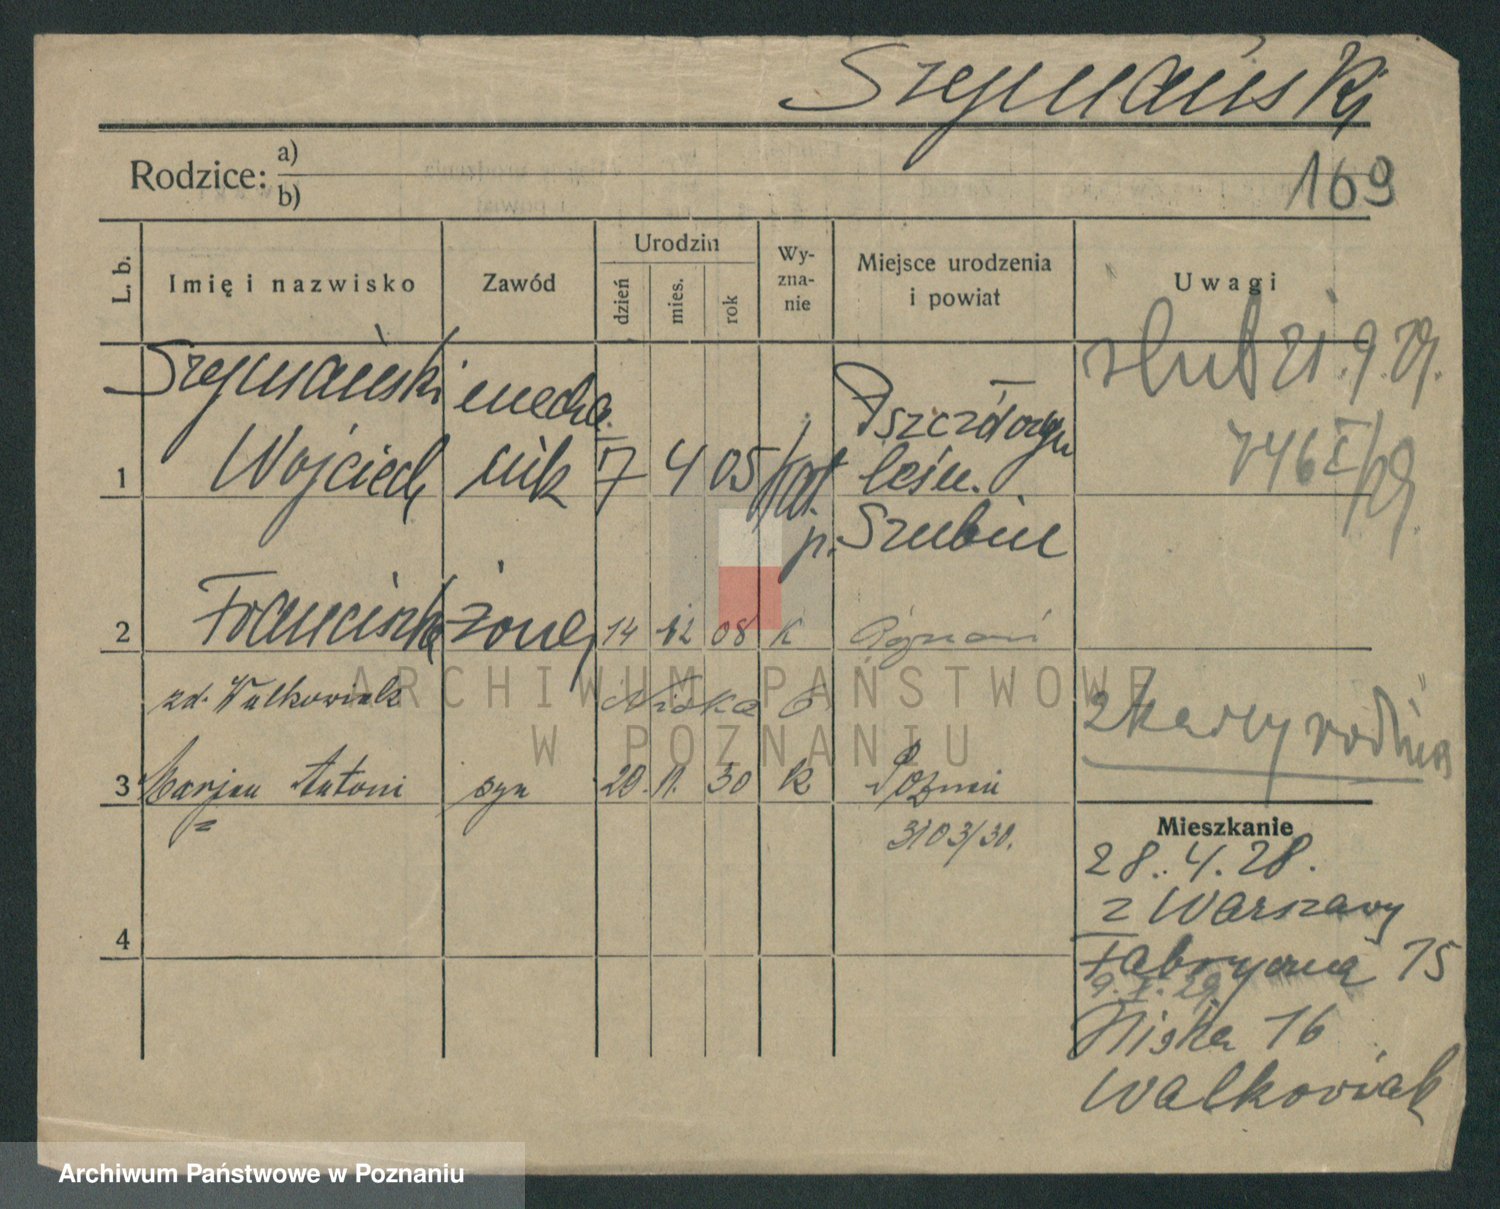 Szymański
Rodzice: a)
b)
169
L. b.
Imię i nazwisko
Zawód
Urodzin
dzień
mies.
rok
Wy-
zna-
nie
Miejsce urodzenia
i powiat
Uwagi
Szymański
Wojciech
mecha
nik
7 4 05 kat.
leśn.
p. Szubin
ślub 21.9.29.
746 I/29
1
2 Franciszka żona 14 12 08 k Poznań
zd. Walkowiak Niska 6
2 karty rodne
3 Marjan Antoni syn 20. 11. 30 k Poznań
3103/30.
Mieszkanie
28.4.28.
z Warszawy
4
Fabryczna 15
9. X. 29
Niska 16
Walkowiak
ARCHIWUM PAŃSTWOWE
W POZNANIU
Archiwum Państwowe w Poznaniu